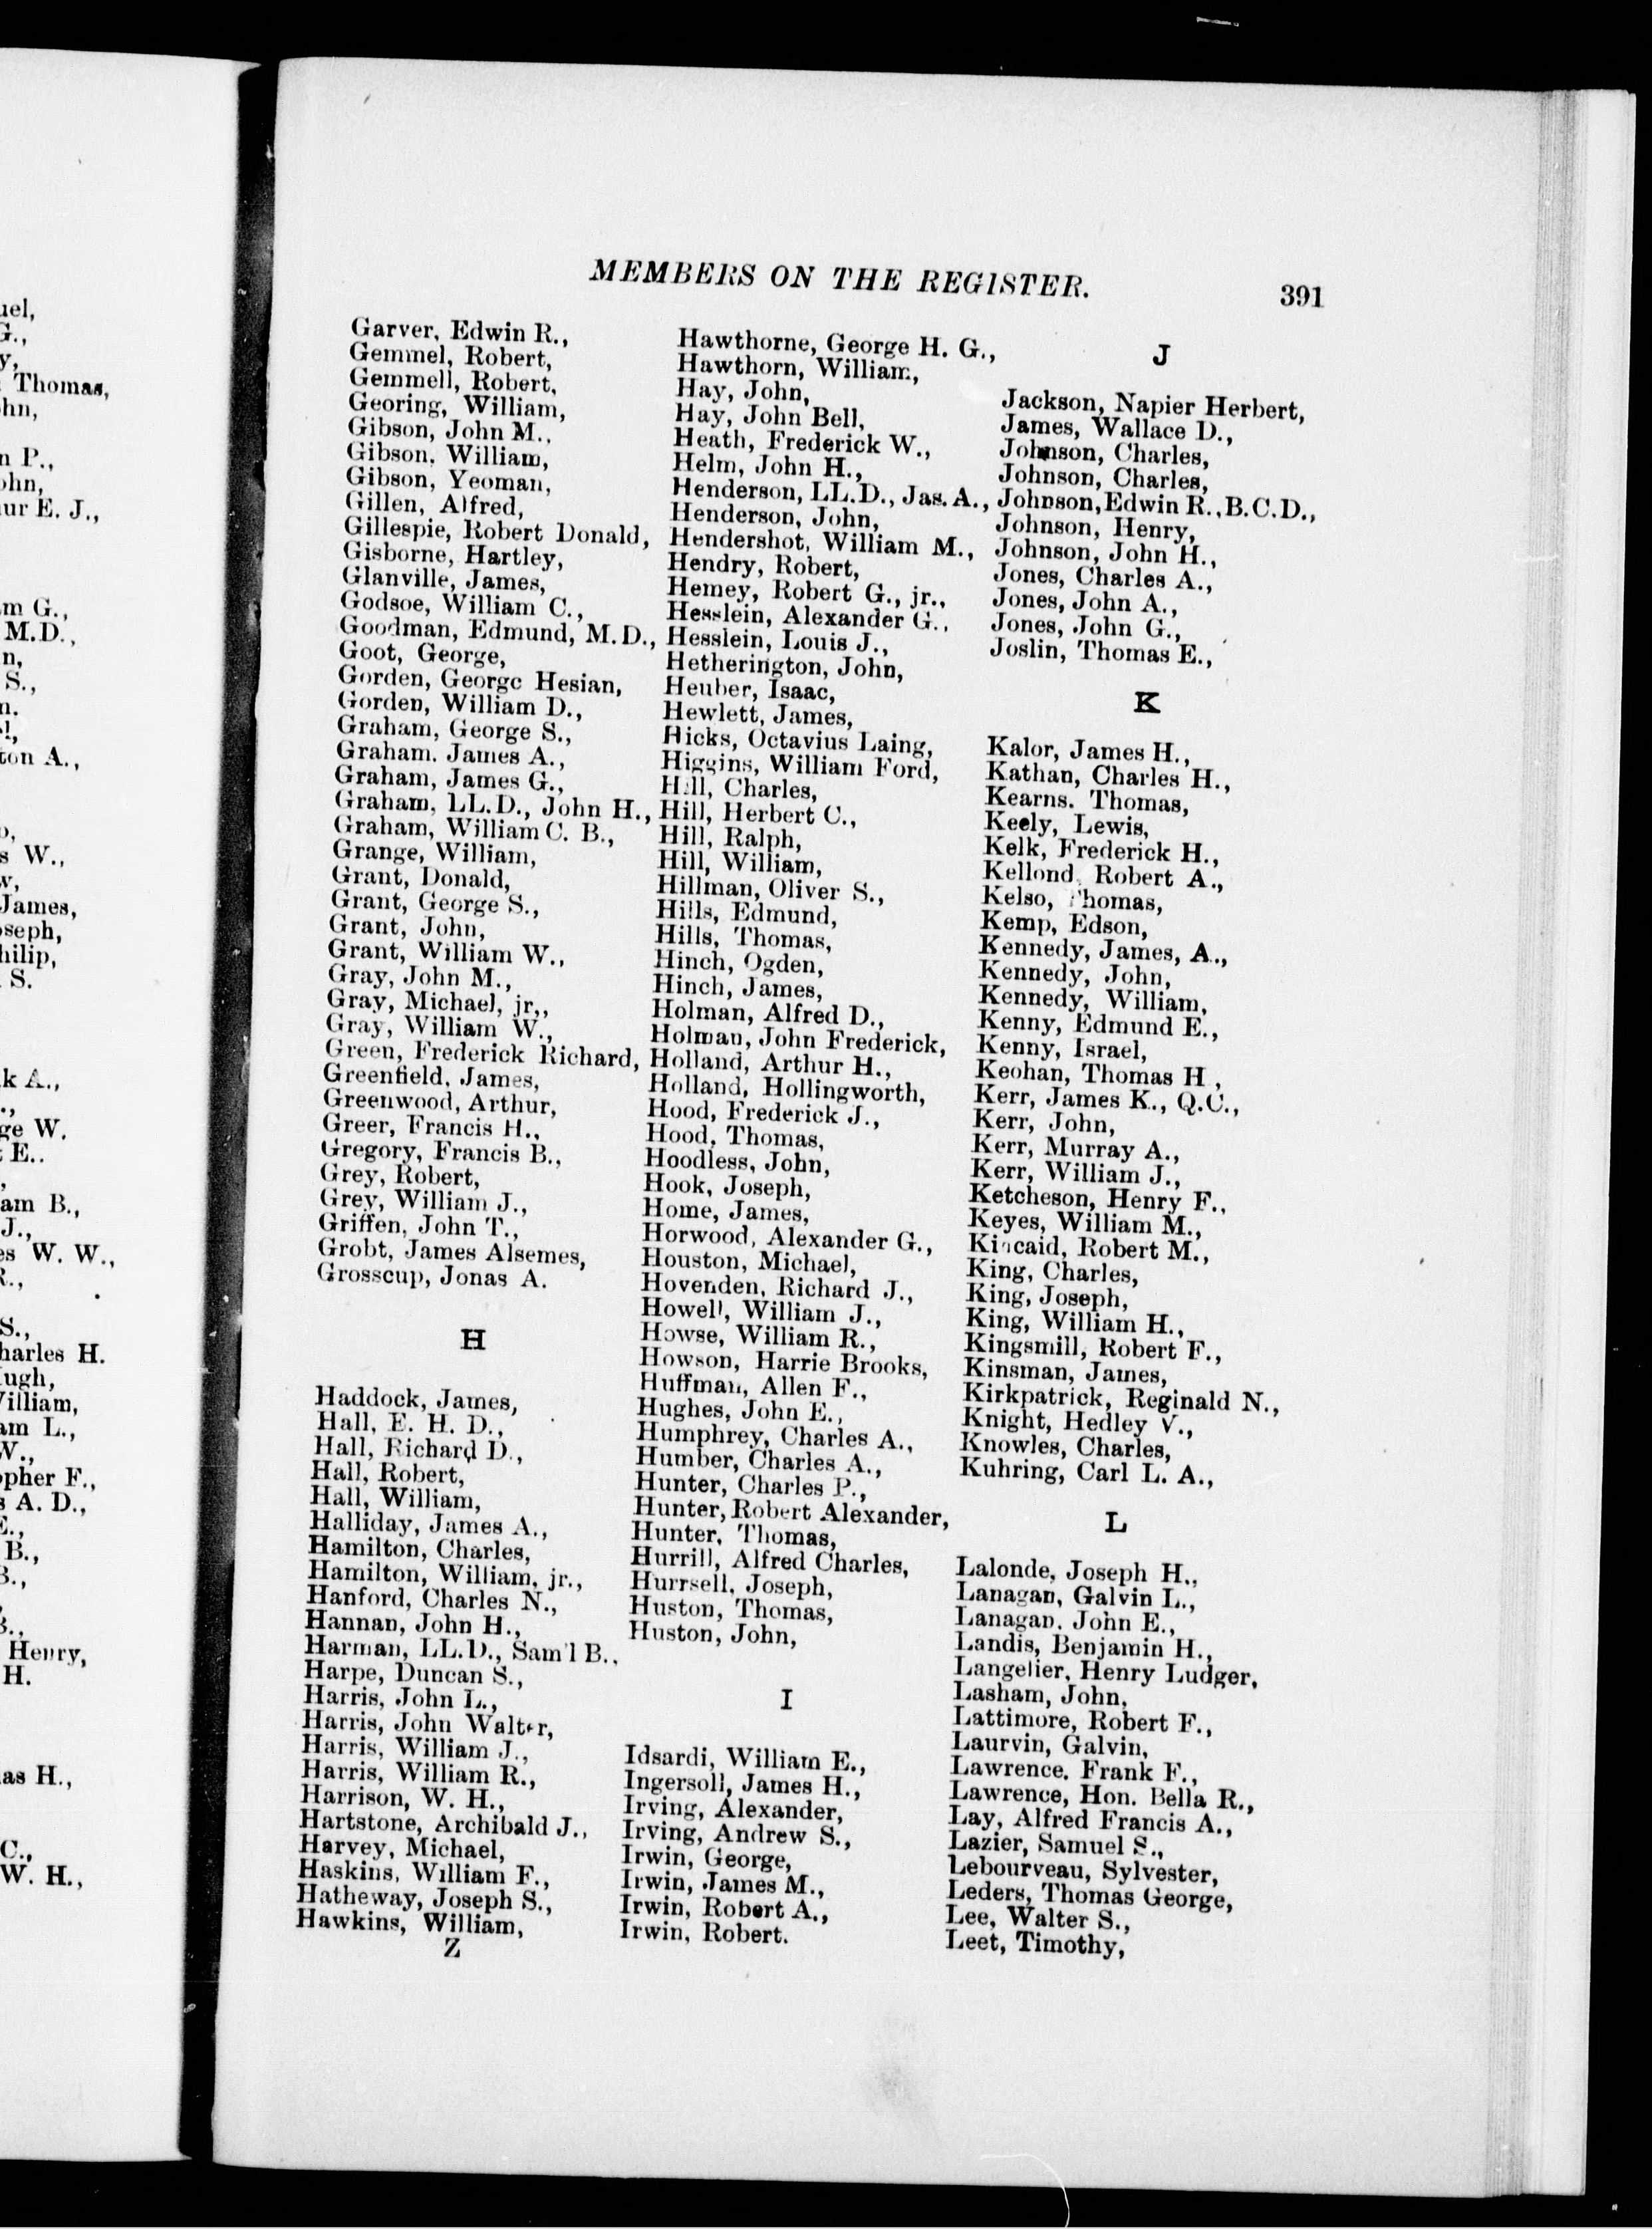 uel,
G.,
y,
Thomas,
hn,
n P.,
ohn,
ur E. J.,
m G.,
M.D.,
n,
S.,
n.
el,
ton A.,
o,
s W.,
w,
James,
oseph,
hilip,
S.
k A.,
ge W.
E..
am B.,
J.,
es W. W.,
R.,
S.,
harles H.
ugh,
illiam,
am L.,
W.,
opher F.,
s A. D.,
E.,
B.,
B.,
B.,
Henry,
H.
as H.,
C.,
W. H.,
MEMBERS ON THE REGISTER.
391
Garver, Edwin R.,
Gemmel, Robert,
Gemmell, Robert,
Georing, William,
Gibson, John M.,
Gibson, William,
Gibson, Yeoman,
Gillen, Alfred,
Gillespie, Robert Donald,
Gisborne, Hartley,
Glanville, James,
Godsoe, William C.,
Goodman, Edmund, M.D.,
Goot, George,
Gorden, George Hesian,
Gorden, William D.,
Graham, George S.,
Graham, James A.,
Graham, James G.,
Graham, LL.D., John H.,
Graham, William C. B.,
Grange, William,
Grant, Donald,
Grant, George S.,
Grant, John,
Grant, William W.,
Gray, John M.,
Gray, Michael, jr.,
Gray, William W.,
Green, Frederick Richard,
Greenfield, James,
Greenwood, Arthur,
Greer, Francis H.,
Gregory, Francis B.,
Grey, Robert,
Grey, William J.,
Griffen, John T.,
Grobt, James Alsemes,
Grosscup, Jonas A.
H
Haddock, James,
Hall, E. H. D.,
Hall, Richard D.,
Hall, Robert,
Hall, William,
Halliday, James A.,
Hamilton, Charles,
Hamilton, William, jr.,
Hanford, Charles N.,
Hannan, John H.,
Harman, LL.D., Sam'l B.,
Harpe, Duncan S.,
Harris, John L.,
Harris, John Walter,
Harris, William J.,
Harris, William R.,
Harrison, W. H.,
Hartstone, Archibald J.,
Harvey, Michael,
Haskins, William F.,
Hatheway, Joseph S.,
Hawkins, William,
Z
Hawthorne, George H. G.,
Hawthorn, William,
Hay, John,
Hay, John Bell,
Heath, Frederick W.,
Helm, John H.,
Henderson, LL.D., Jas. A.,
Henderson, John,
Hendershot, William M.,
Hendry, Robert,
Hemey, Robert G., jr.,
Hesslein, Alexander G.,
Hesslein, Louis J.,
Hetherington, John,
Heuber, Isaac,
Hewlett, James,
Hicks, Octavius Laing,
Higgins, William Ford,
Hill, Charles,
Hill, Herbert C.,
Hill, Ralph,
Hill, William,
Hillman, Oliver S.,
Hills, Edmund,
Hills, Thomas,
Hinch, Ogden,
Hinch, James,
Holman, Alfred D.,
Holman, John Frederick,
Holland, Arthur H.,
Holland, Hollingworth,
Hood, Frederick J.,
Hood, Thomas,
Hoodless, John,
Hook, Joseph,
Home, James,
Horwood, Alexander G.,
Houston, Michael,
Hovenden, Richard J.,
Howell, William J.,
Howse, William R.,
Howson, Harrie Brooks,
Huffman, Allen F.,
Hughes, John E.,
Humphrey, Charles A.,
Humber, Charles A.,
Hunter, Charles P.,
Hunter, Robert Alexander,
Hunter, Thomas,
Hurrill, Alfred Charles,
Hurrsell, Joseph,
Huston, Thomas,
Huston, John,
I
Idsardi, William E.,
Ingersoll, James H.,
Irving, Alexander,
Irving, Andrew S.,
Irwin, George,
Irwin, James M.,
Irwin, Robert A.,
Irwin, Robert.
J
Jackson, Napier Herbert,
James, Wallace D.,
Johnson, Charles,
Johnson, Charles,
Johnson, Edwin R., B.C.D.,
Johnson, Henry,
Johnson, John H.,
Jones, Charles A.,
Jones, John A.,
Jones, John G.,
Joslin, Thomas E.,
K
Kalor, James H.,
Kathan, Charles H.,
Kearns. Thomas,
Keely, Lewis,
Kelk, Frederick H.,
Kellond, Robert A.,
Kelso, Thomas,
Kemp, Edson,
Kennedy, James, A.,
Kennedy, John,
Kennedy, William,
Kenny, Edmund E.,
Kenny, Israel,
Keohan, Thomas H,
Kerr, James K., Q.C.,
Kerr, John,
Kerr, Murray A.,
Kerr, William J.,
Ketcheson, Henry F.,
Keyes, William M.,
Kincaid, Robert M.,
King, Charles,
King, Joseph,
King, William H.,
Kingsmill, Robert F.,
Kinsman, James,
Kirkpatrick, Reginald N.,
Knight, Hedley V.,
Knowles, Charles,
Kuhring, Carl L. A.,
L
Lalonde, Joseph H.,
Lanagan, Galvin L.,
Lanagan, John E.,
Landis, Benjamin H.,
Langelier, Henry Ludger,
Lasham, John,
Lattimore, Robert F.,
Laurvin, Galvin,
Lawrence. Frank F.,
Lawrence, Hon. Bella R.,
Lay, Alfred Francis A.,
Lazier, Samuel S.,
Lebourveau, Sylvester,
Leders, Thomas George,
Lee, Walter S.,
Leet, Timothy,